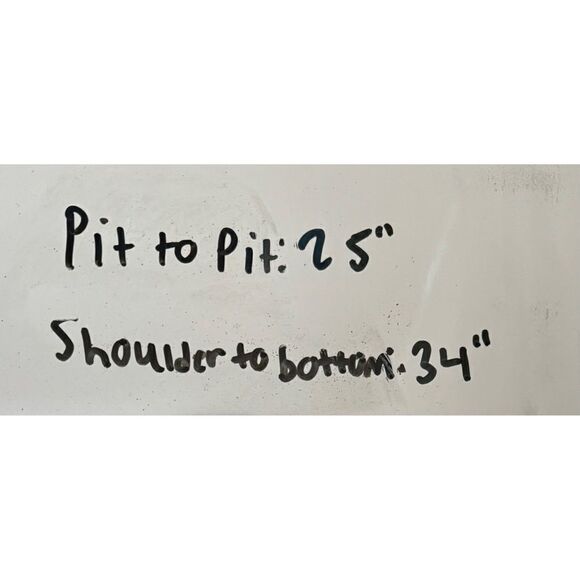 Pit to Pit: 25"
Shoulder to bottom: 34"